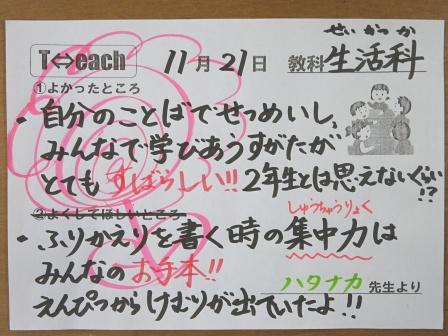 T⇔each 11月21日 教科 生活科
せいかつか
①よかったところ
・自分のことばでせつめいし、
みんなで学びあうすがたが
とても すばらしい!! 2年生とは思えないぐらい!?
②よくしてほしいところ
しゅうちゅうりょく
・ふりかえりを書く時の集中力は
みんなのお手本!!
ハタナカ 先生より
えんぴつからけむりが出ていたよ!!